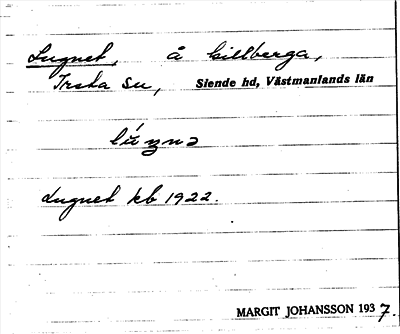 Lugnet, å Lillberga,
Irsta sn, Siende hd, Västmanlands län
lúŋnə
Lugnet kb 1922.
MARGIT JOHANSSON 1937.